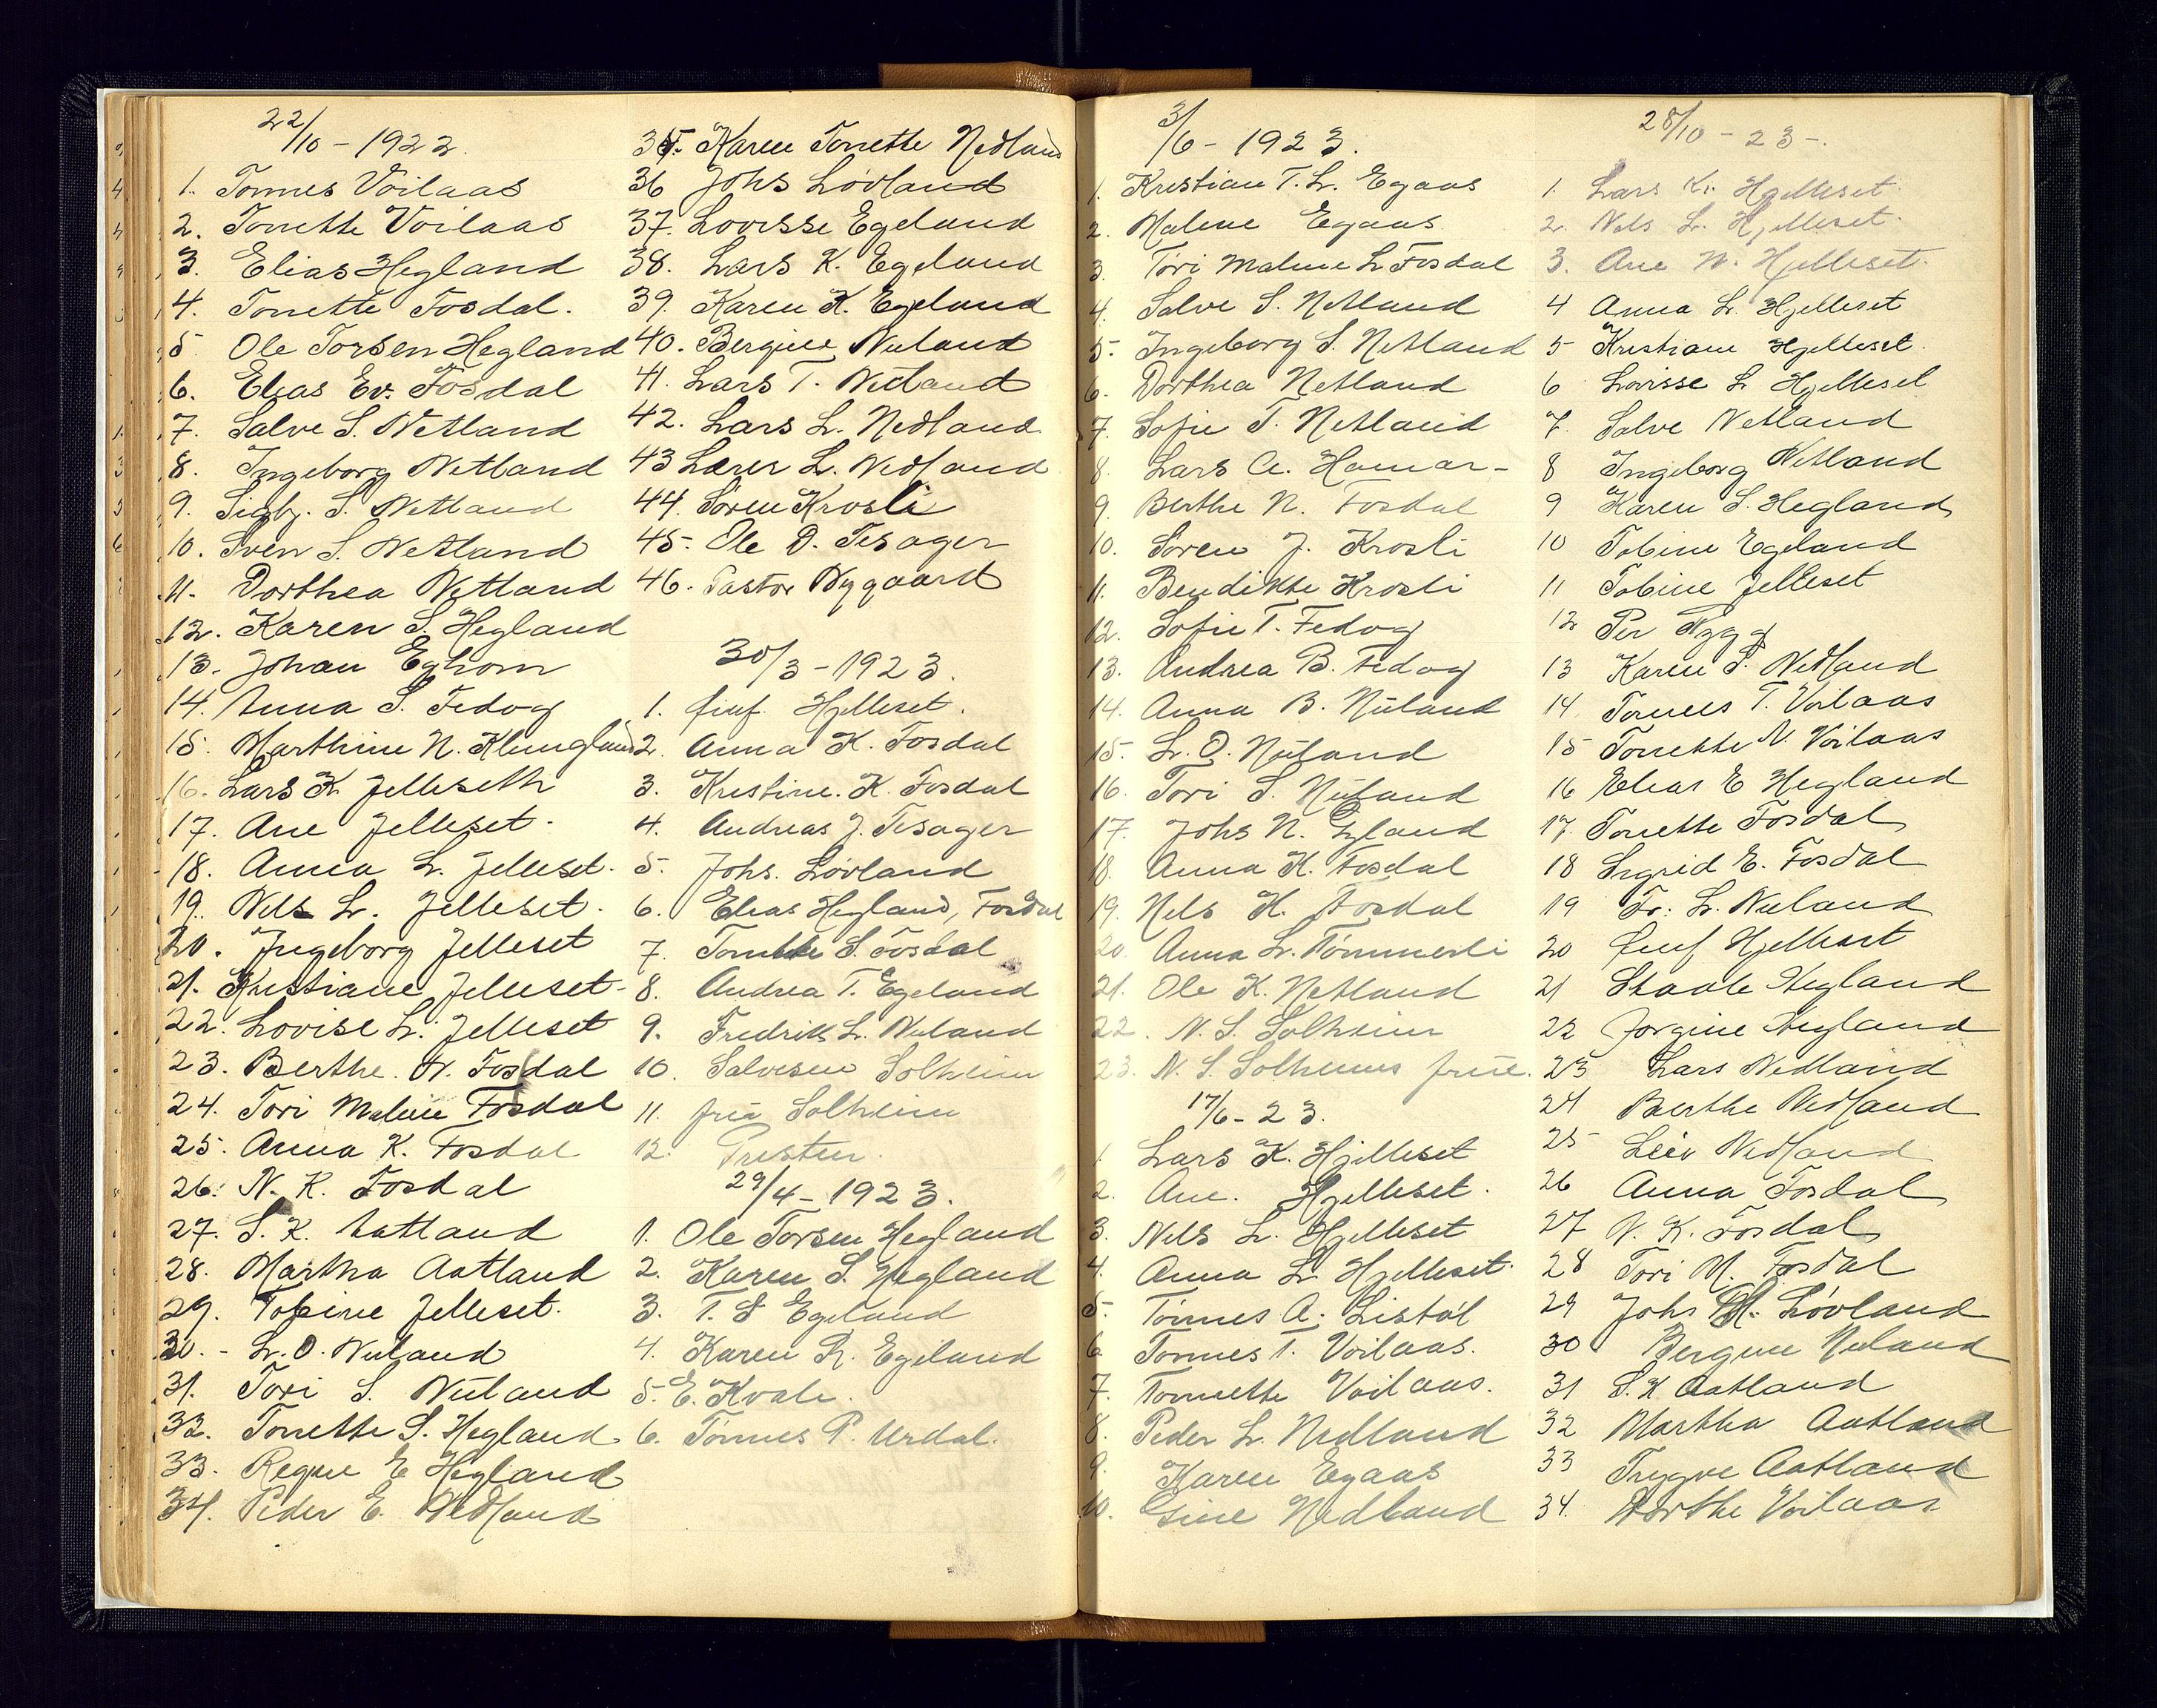 22/10 - 1922.
1. Tonnes Voilaas
2. Tonette Voilaas
3. Elias Hegland
4. Tonette Fosdal.
5 Ole Torsen Hegland
6. Elias Ev. Fosdal
7. Salve S. Netland
8. Ingeborg Netland
9. Sigbj. S. Netland
10. Sven S. Netland
11. Dorthea Netland
12. Karen S. Hegland
13. Johan Eghom
14. Anna S. Fedog
15. Marthine N. Klungland
16. Lars K Jelleseth
17. Ane Jelleset.
18. Anna L. Jelleset.
19. Nels L. Jelleset.
20. Ingeborg Jelleset
21. Kristiane Jelleset
22. Lovise L. Jelleset
23. Berthe N. Fosdal
24. Tori Malene Fosdal
25. Anna K. Fosdal
26. N. K. Fosdal
27. S. K. Aatland
28. Martha Aatland
29. Tobine Jelleset.
30. - L. O. Nuland
31. Tori S. Nuland
32. Tonette S. Hegland
33. Regine E Hegland
34. Peder E. Nedland
35. Karen Tonette Nedland
36 Johs Lovland
37. Lovisse Egeland
38. Lars K. Egeland
39. Karen K. Egeland
40. Bergine Nuland
41. Lars T. Nedland
42. Lars L. Nedland
43 L. Nedland
44. Soren Krosli
45. Ole D. Tesager
46. Pastor Nygaard
30/3 - 1923.
1. Hjelleset.
2. Anna K. Fosdal
3. Kristine. K. Fosdal
4. Andreas J. Tesager
5. Johs. Lovland
6. Elias Hegland, Fosdal
7. Tonette S. Fosdal
8. Andrea T. Egeland
9. Fredrik L. Nuland
10. Salvesen Solheim
11. frú Solheim
12. Presten.
29/4 - 1923.
1. Ole Torsen Hegland
2. Karen S. Hegland
3. T. S Egeland
4. Karen K. Egeland
5. E. Kvale.
6. Tónnes P. Urdal.
3/6 - 1923.
1. Kristian T. L. Egaas
2. Malene Egaas
3. Tóri Malene L Fosdal
4. Salve S. Netland
5. Ingeborg S. Netland
6. Dorthea Netland
7. Sofie T. Netland
8. Lars A. Hamar-
9. Berthe N. Fosdal
10. Soren J. Krosli
11. Bendikte Krosli
12. Sofie T. Fedog
13. Andrea B. Fedog
14. Anna B. Nuland
15. L. O. Nuland
16. Tori S. Nuland
17. Johs N. Egland
18. Anna K. Fosdal
19. Nels K. Fosdal
20. Anna L. Tómmerli
21. Ole K. Netland
22. N. S. Solheim
23. N. S. Solheims frúe.
17/6 - 23.
1 Lars K. Hjelleset
2. Ane. Hjelleset.
3. Nels L. Hjelleset
4. Anna L Hjelleset.
5. Tónnes A. Listól
6. Tónnes T. Voilaas.
7. Tonnette Voilaas.
8. Peder L. Nedland
9. Karen Egaas
10. Gine Nedland
28/10 - 23 -.
1. Lars Kr. Hjelleset.
2. Nels L. Hjelleset.
3. Ane N. Hjelleset.
4 Anna L. Hjelleset
5 Kristiane Hjelleset.
6 Lovisse L Hjelleset
7 Salve Netland
8 Ingeborg Netland
9 Karen S. Hegland
10 Tobine Egeland
11 Tobine Jelleset
12 Per Rygg
13 Karen T. Nedland
14 Tonnes T. Voilaas
15 Tonette N. Voilaas
16 Elias E Hegland
17. Tonette Fosdal
18 Sigrid E. Fosdal
19 Fr: L. Nuland
20
21 Staale Hegland
22 Jorgine Hegland
23 Lars Nedland
24 Berthe Nedland
25 Leiv Nedland
26 Anna Fosdal
27 N. K. Fosdal
28 Tori M. Fosdal
29 Johs Lóvland
30 Bergine Nuland
31 S. K Aatland
32 Martha Aatland
33 Trygve Aatland
34. Dorthe Voilaas